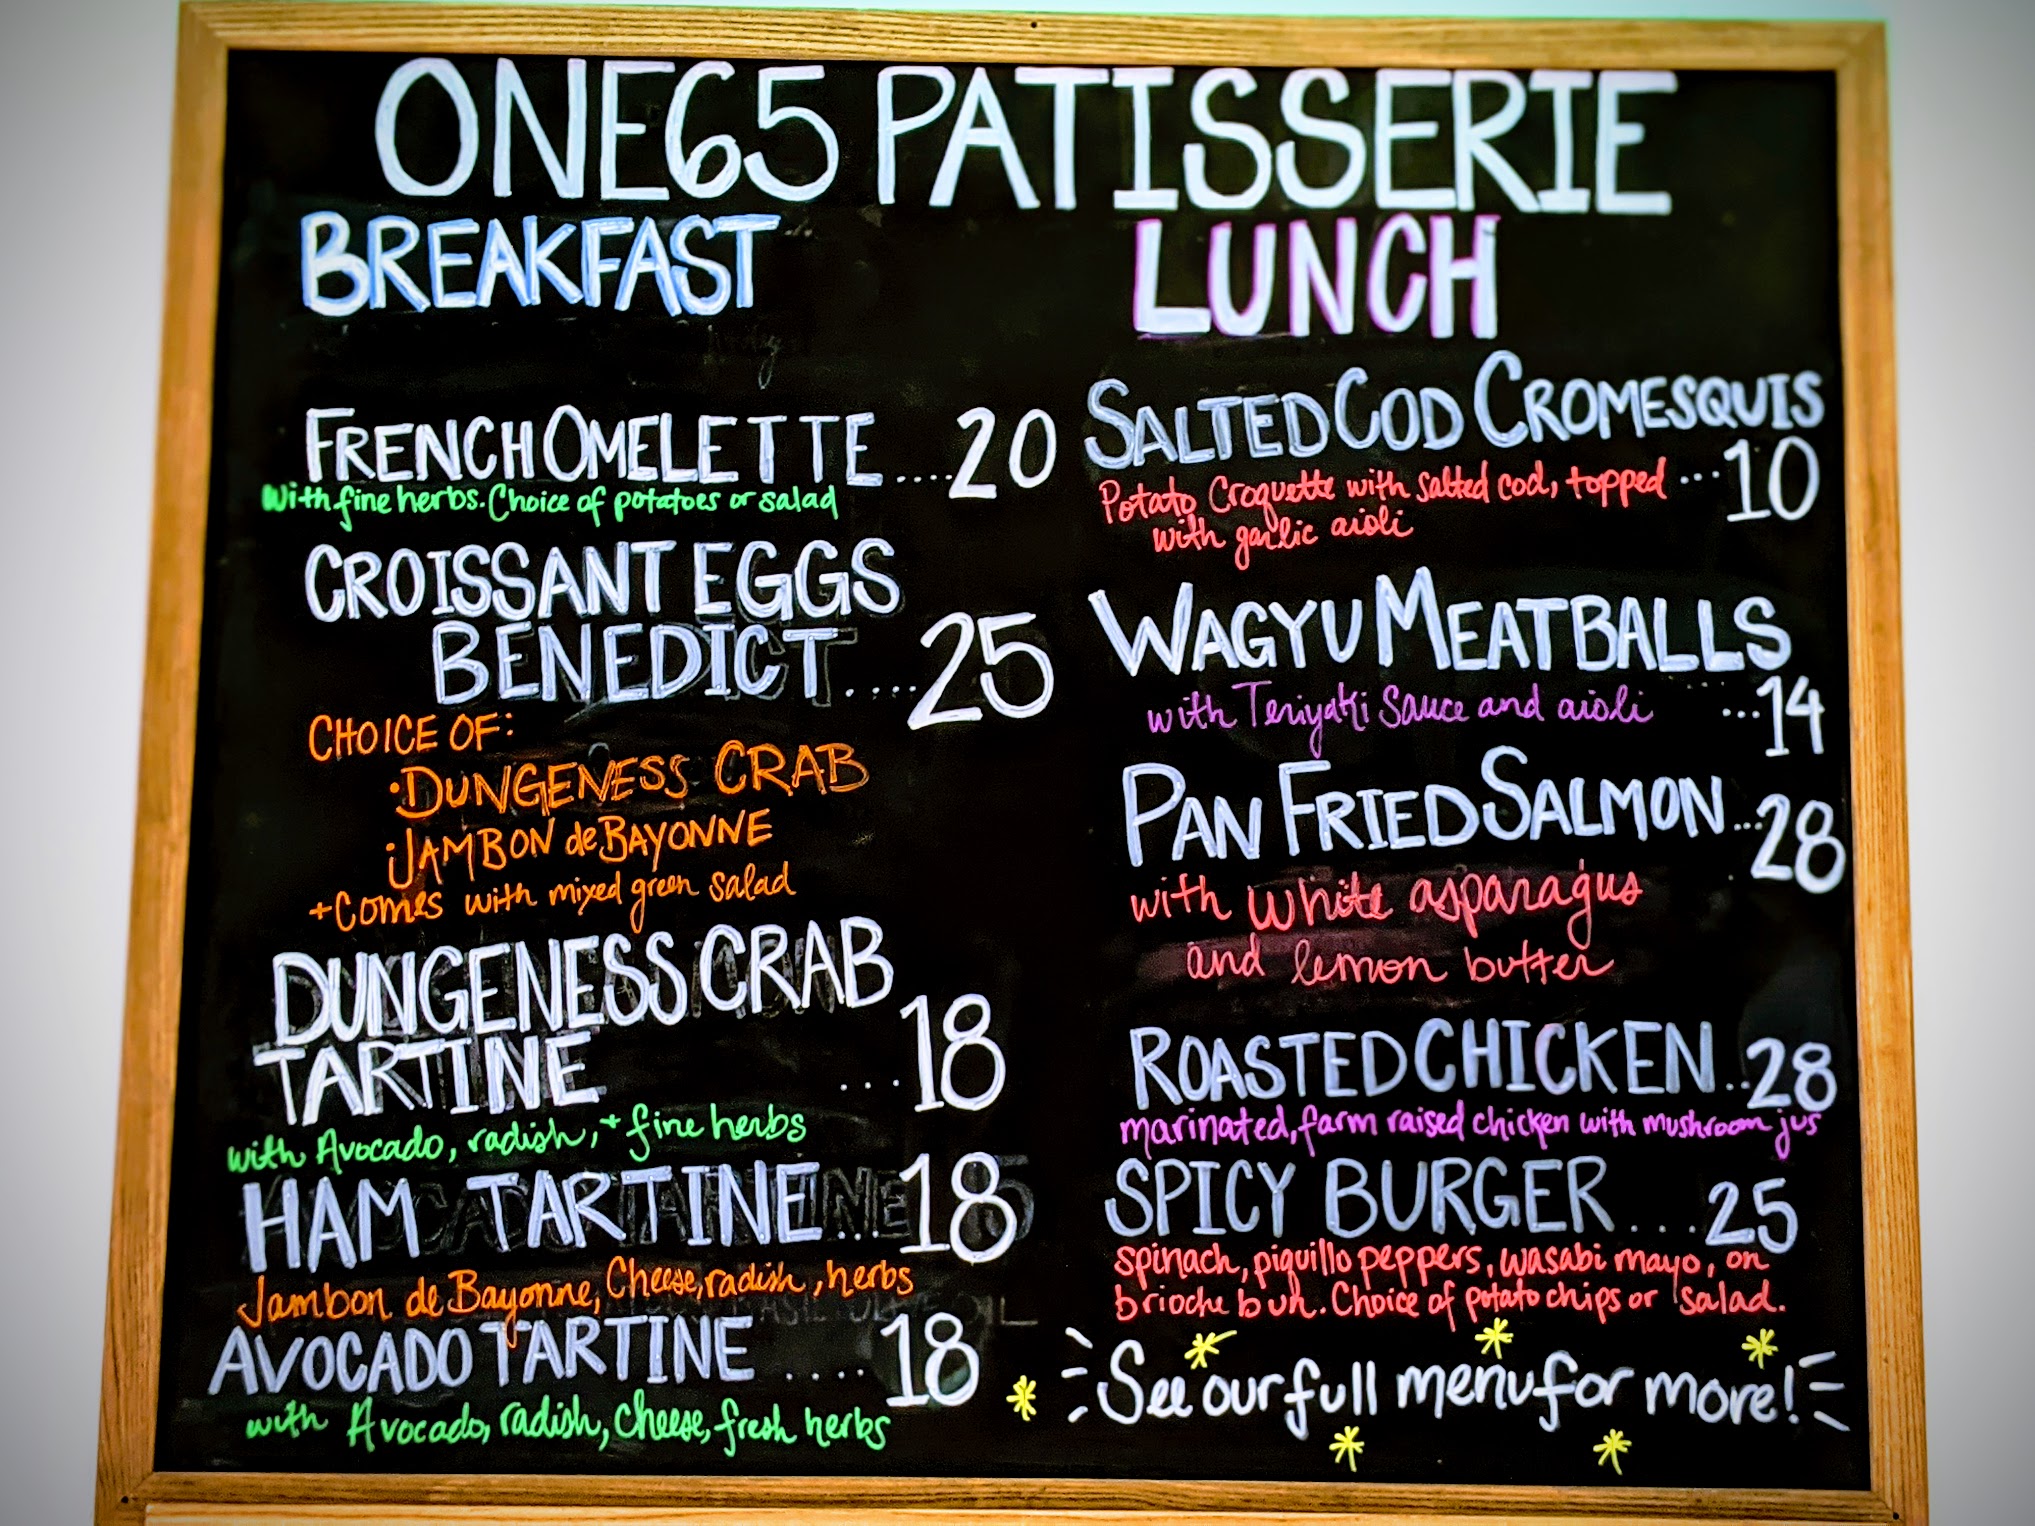 ONE65 PATISSERIE
BREAKFAST
FRENCH OMELETTE....20
with fine herbs. Choice of potatoes or salad
CROISSANT EGGS
BENEDICT....25
CHOICE OF:
·DUNGENESS CRAB
·JAMBON de BAYONNE
+Comes with mixed green salad
DUNGENESS CRAB
TARTINE ...18
with Avocado, radish, + fine herbs
HAM TARTINE...18
Jambon de Bayonne, Cheese, radish, herbs
AVOCADO TARTINE ....18
with Avocado, radish, cheese, fresh herbs
LUNCH
SALTED COD CROMESQUIS
Potato Croquette with salted cod, topped ...10
with garlic aioli
WAGYU MEATBALLS
with Teriyaki Sauce and aioli ...14
PAN FRIED SALMON...28
with white asparagus
and lemon butter
ROASTED CHICKEN...28
marinated, farm raised chicken with mushroom jus
SPICY BURGER...25
spinach, piquillo peppers, wasabi mayo, on
brioche bun. Choice of potato chips or salad.
See our full menu for more!